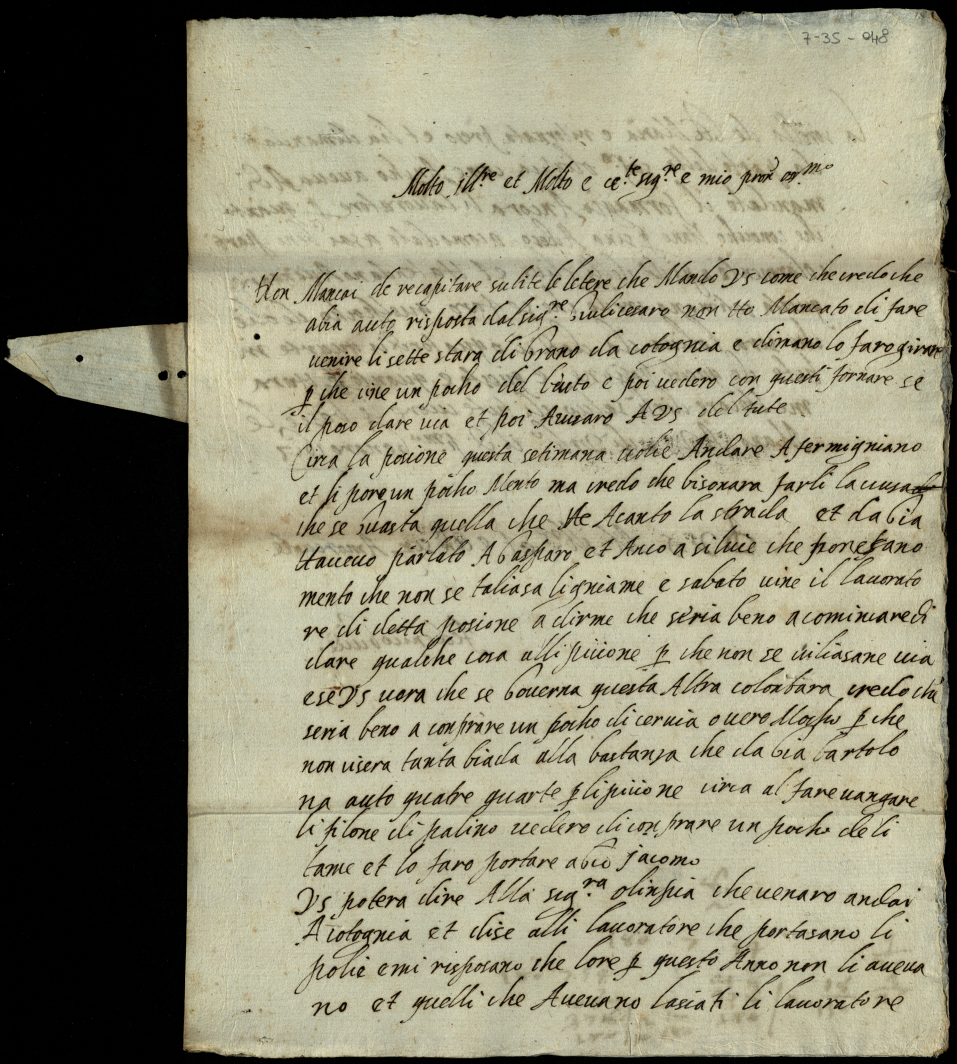 7-35-048
Molto ill.re et Molto e ce.te sig.re e mio pron
Non Mancai de recapitare subite le letere che Mando VS come che credo che
abia auto risposta dal sig.re Guilicesaro non Ho Mancato di fare
venire li sette stara di Grano da cotognia e dimano lo faro
p che un pocho del e poi vedero con questi fornare se
il poso dare via et poi Avisaro A VS del tute
Circa la posione questa setimana volie Andare A fermigniano
et li poro un pocho Mento ma credo che bisonara farli la
che se Guasta quella che Ste Acanto la strada et da Gia
Havevo parlato A Gasparo et Anco a silvie che
mento che non se taliasa ligniame e sabato vine il lavorato
re di detta posione a dirme che seria beno acominciare di
dare qualche cosa alli picione p che non se sviliasane via
e se VS vora che se Governa questa Altra colonbara credo che
seria beno a conprare un pocho di cervia overo Mocho p che
non visera tanta biada alla bastanza che da Gia bartolo
na auto quatre quarte p li picione circa al fare vangare
li filone di palino vedero di conprare un pocho de li
tame et lo faro portare a Gio jacomo
VS potera dire Alla sig.ra olinpia che venaro andai
A cotognia et dise alli lavoratore che portasano li
polie e mi risposano che lore p questo Anno non li aveva
no et quelli che Avevano lasiati li lavoratore